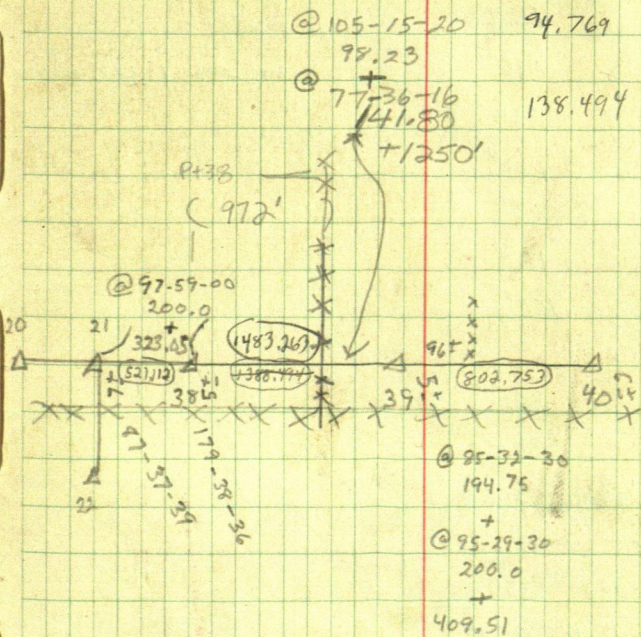 @ 105-15-20 94.769
98.23
@ +
77-36-16 138.494
141.80
+1250'
P+38
( 972' )
@ 97-59-00
200.0
+
20 21 323.05 1483.263
521.12 1388.494 96± 802.753
7.2 38 5± 39 5± 40
87-37-39
179-38-36
22
@ 85-32-30
194.75
+
@ 95-29-30
200.0
+
409.51